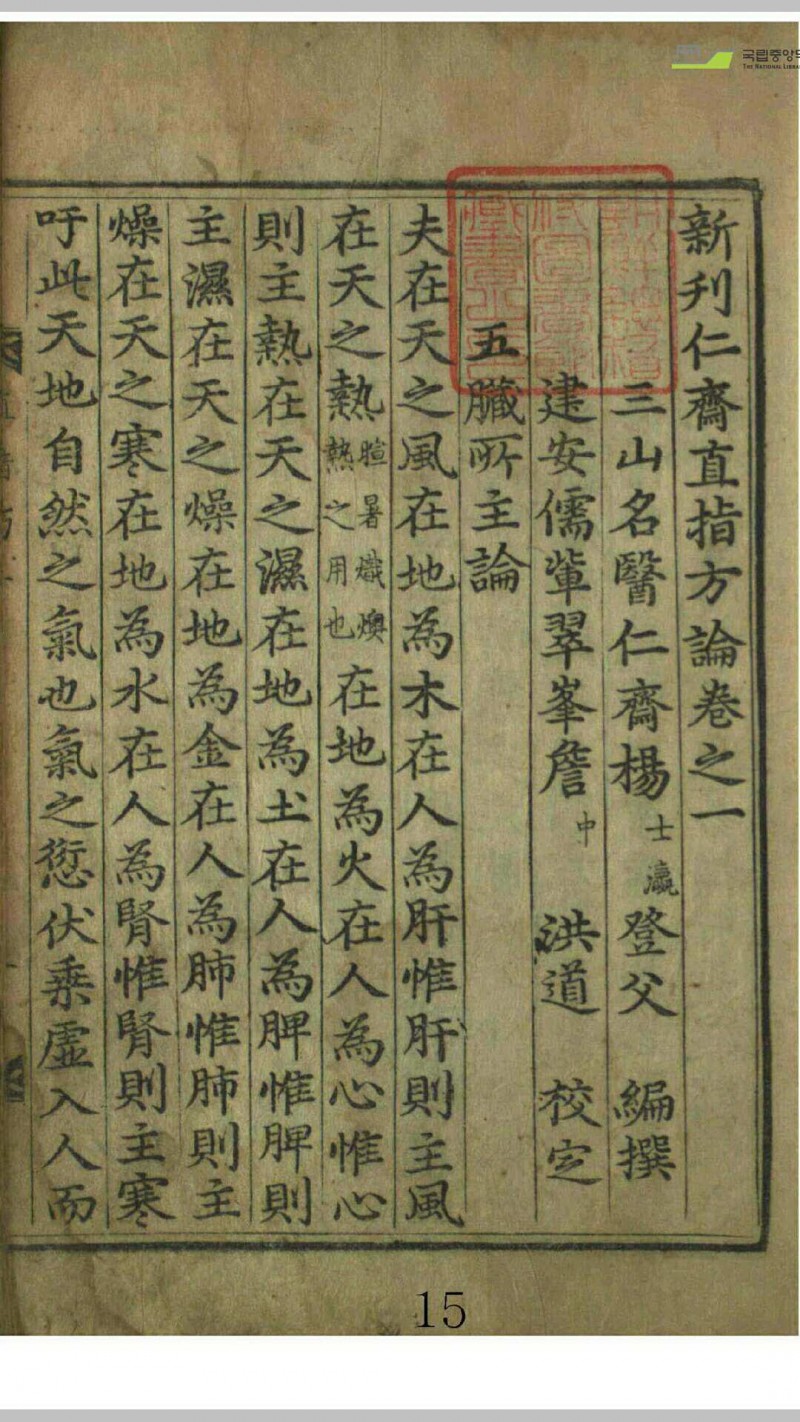 新刋仁齋直指方論卷之一
三山名醫仁齋楊士瀛登父 編撰
建安儒軰翠峯詹中 洪道 校定
五臓所主論
夫在天之風在地為木在人為肝惟肝則主風
在天之熱暄暑熾燠熱之用也在地為火在人為心惟心
則主熱在天之濕在地為土在人為脾惟脾則
主濕在天之燥在地為金在人為肺惟肺則主
燥在天之寒在地為水在人為腎惟腎則主寒
吁此天地自然之氣也氣之愆伏乗虛入人而
15
국립중앙
THE NATIONAL LIBRA